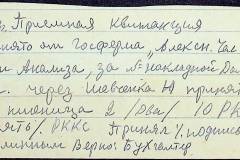 из, Приемная Квитанция
нято от Госферма "Алексн. Час
и Анализа, за № накладной
. через Шевченка Ю принят
пшеница 2 /Два/ 10 РК
ять/. РККС Принял /. подпись
линным Верно: Бухгалтер